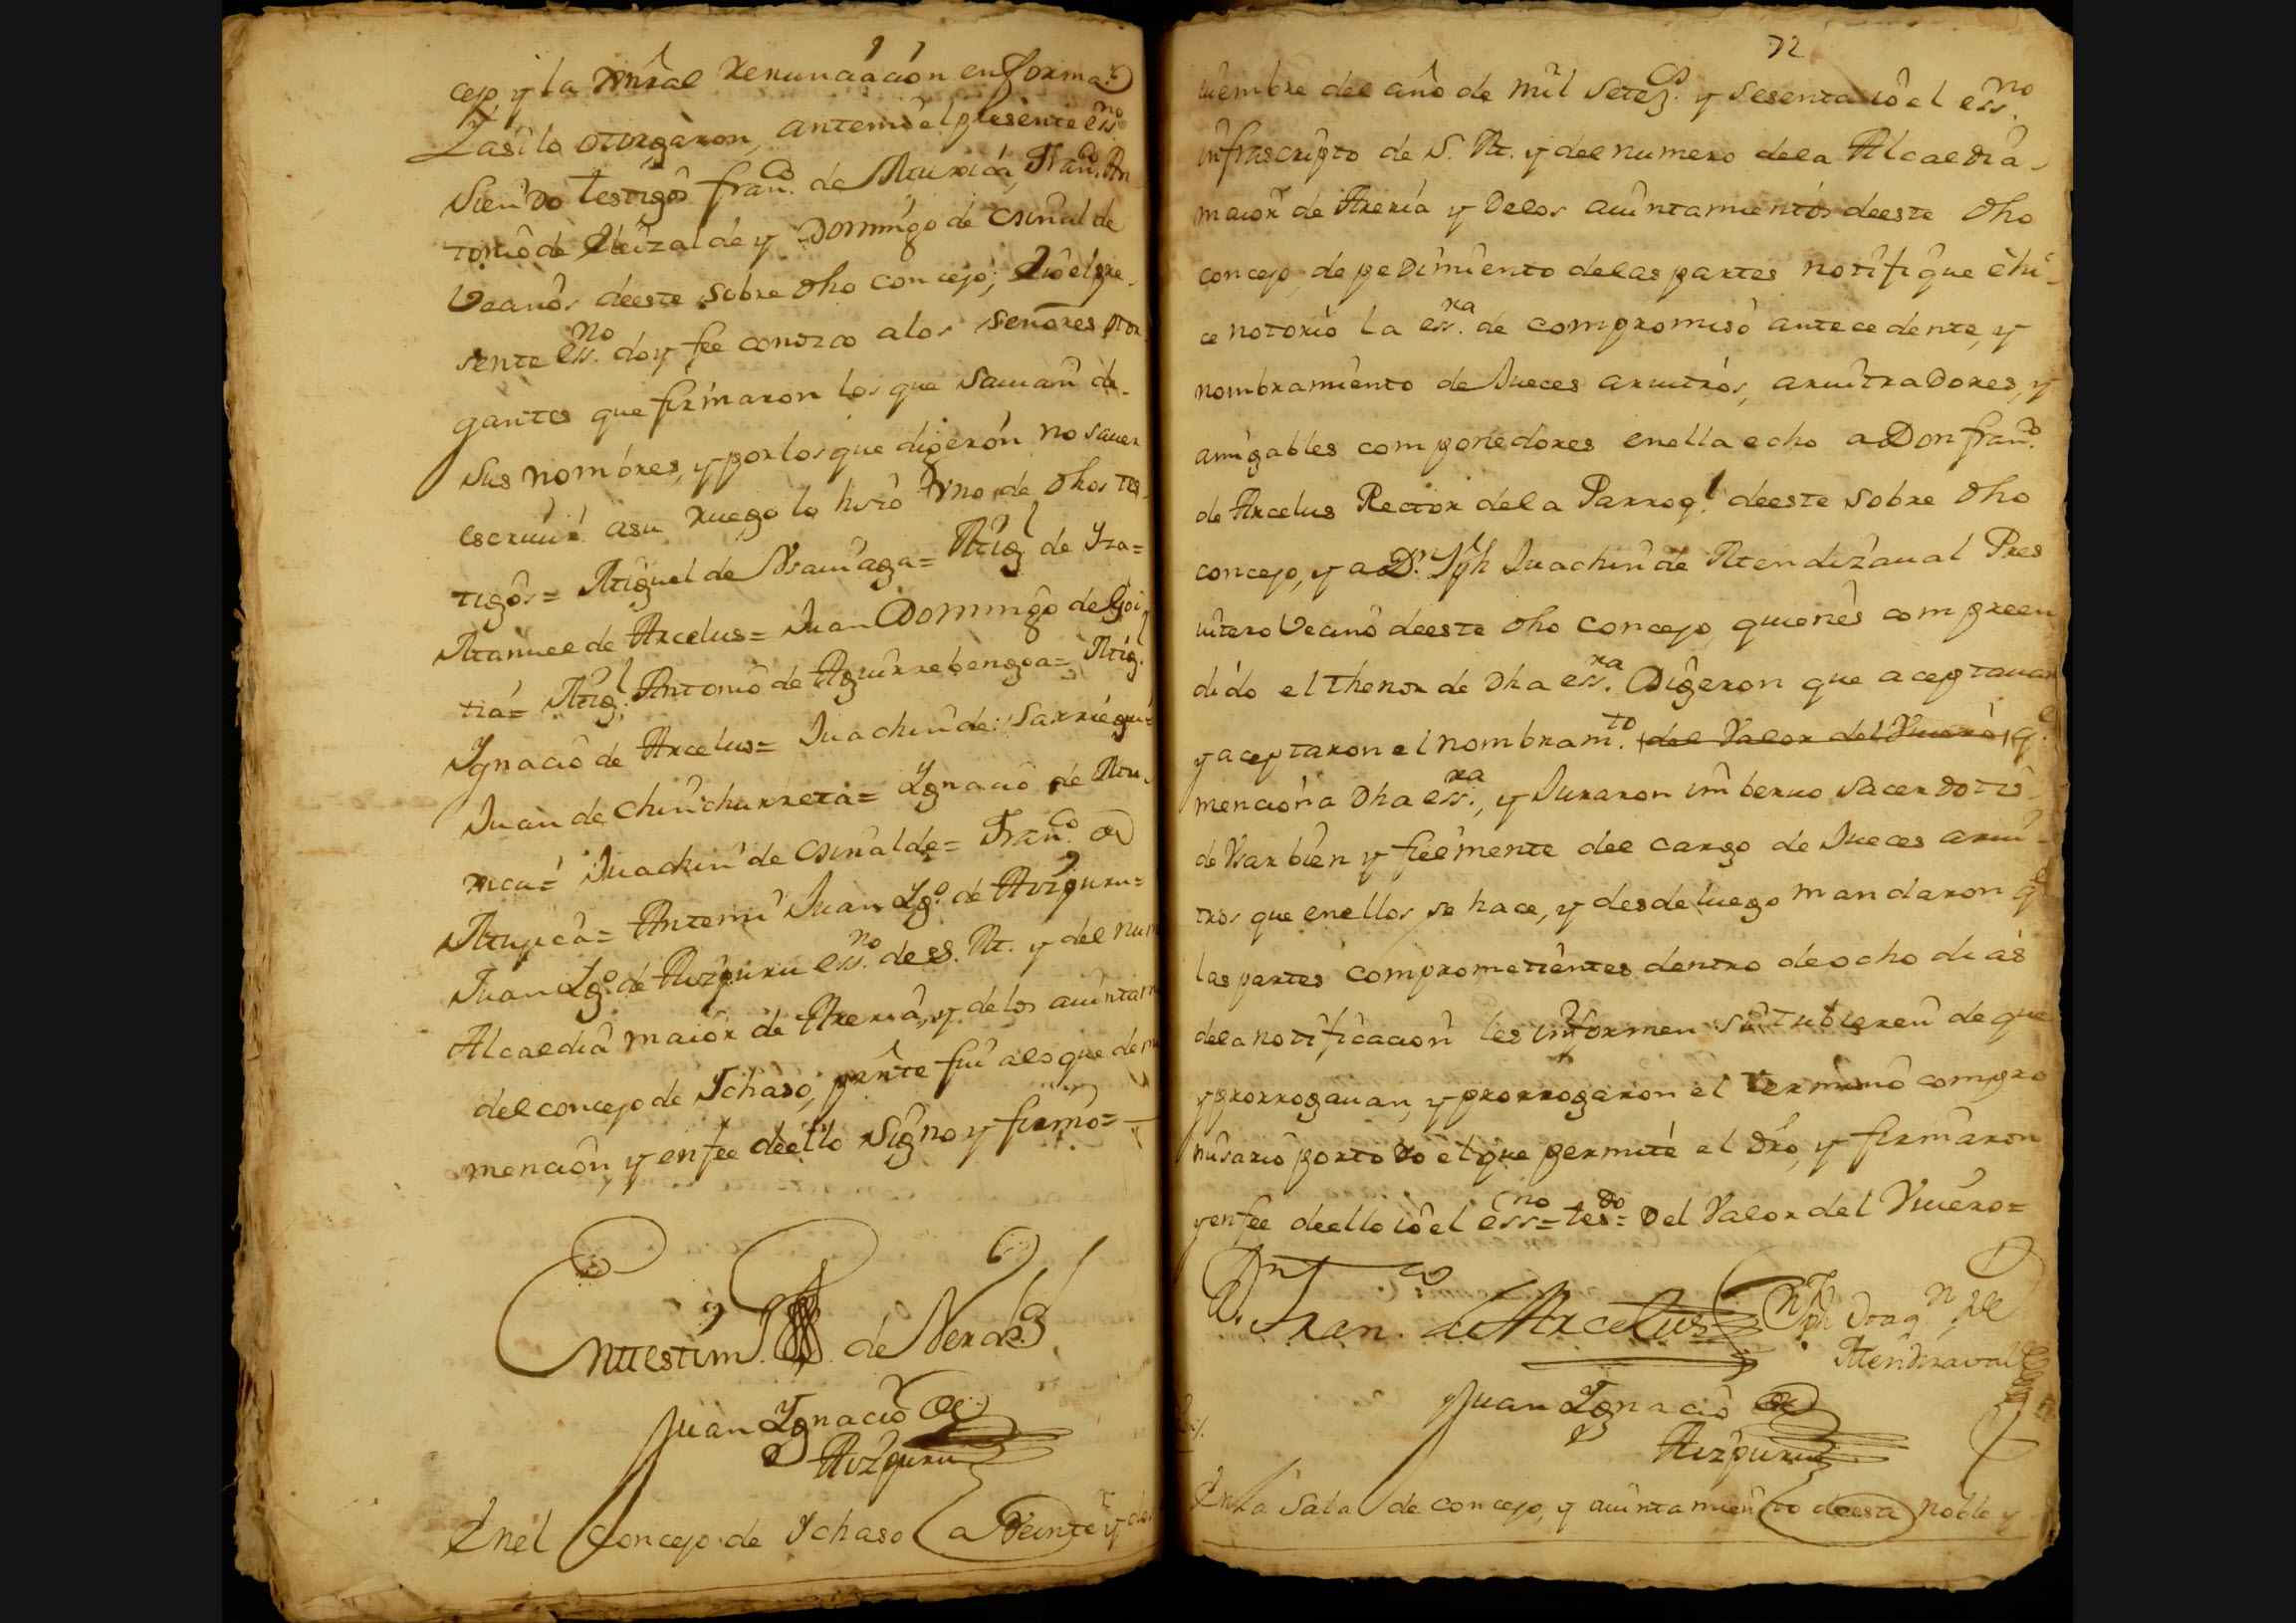 cejo y la Gnrâl Renunciacion en forma
Y asi lo otorgaron, antemi el presente ess.no
Siendo testigos fran.co de Muxica, Fran.co An
tonio de Eleizalde y Domingo de Osinalde
Vecinos deeste sobre dho concejo; Io el pre
sente ess.no doy fee conozco a los señores otor
gantes que firmaron los que savian de
sus nombres, y por los que digeron no saver
escriuir asu ruego lo hizo vno de dhos tes
tigos= Miguel de Vsauiaga= Mig.l de Yza=
Manuel de Arcelus= Juan Domingo de Goi
tia= Mig.l Antonio de Aguirrebengoa= Mig.l
Ygnacio de Arcelus= Juachin de Sarriegui=
Juan de Chinchurreta= Ygnacio de Mu
xica= Juachin de Osinalde= Fran.co de
Mujica= Antemi Juan Yg.o de Aizpuru=
Juan Yg.o de Aizpuru ess.no de S. M. y del num
Alcaldia maior de Areria, y de los aiuntam
del concejo de Ychaso, prnte fui alo que de mi
mencion, y en fee deello signo y firmo=
En testim.o de Verdad
Juan Ygnacio de
Aizpuru
Enel Concejo de Ychaso a Veinte y dos
72
uiembre del año de mil setez.s y sesenta io el ess.no
infrascripto de S. M. y del numero dela Alcaldia
maior de Areria y delos aiuntamientos deeste dho
concejo, de pedimiento delas partes notifique é hi
ce notorio la ess.ra de compromiso antecedente, y
nombramiento de Jueces aruitros, aruitradores, y
amigables componedores enella echo a Don fran.co
de Arcelus Rector dela Parroq.l deeste sobre dho
concejo, y a D.n Jph Juachin de Mendizaual Pres
uitero Vecino deeste dho concejo, quienes compreen
dido el thenor de dha ess.ra Digeron que aceptauan
y aceptaron el nombram.to del Valor del Viuero, q.e
menciona dha ess.ra, y Juraron in beruo sacerdotis
de Vsar bien y fielmente del cargo de Jueces arui
tros que enellos se hace, y desde luego mandaron q.e
las partes comprometientes dentro de ocho dias
dela notificacion les informen si tubieren de que
y prorrogauan, y prorrogaron el termino compro
misario por todo el que permite el dro, y firmaron
y en fee deello io el ess.no= tes.do= Del Valor del Viuero=
D.n Fran.co de Arcelus
D.n Jph Joaq.n de
Mendizaval
Juan Ygnacio de
Aizpuru
En la Sala de concejo, y aiuntamiento deeste noble y